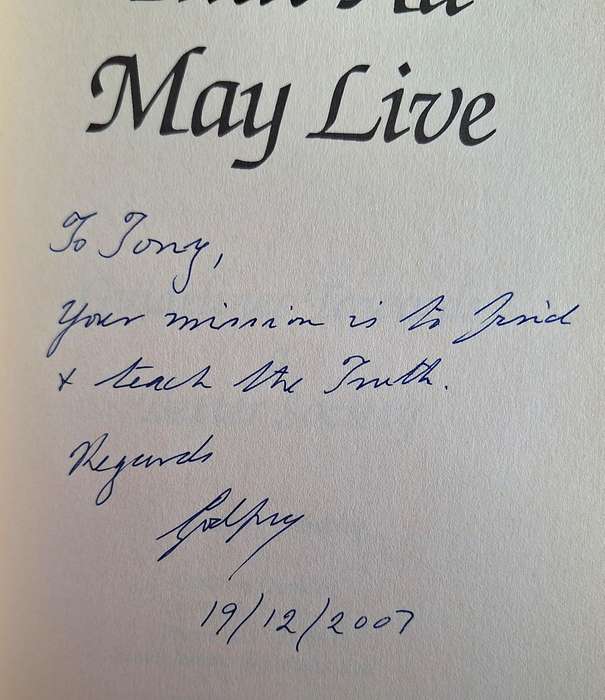 May Live
To Tony,
Your mission is to find
& teach the Truth.
Regards
Godfrey
19/12/2007